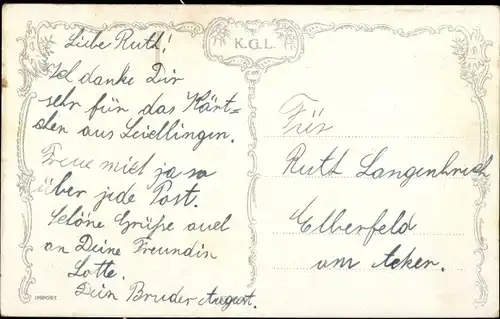 K.G.L.
Liebe Ruth!
Ich danke Dir
sehr für das Kärt=
chen aus Leichlingen.
Freue mich ja so
über jede Post.
Schöne Grüße auch
an Deine Freundin
Lotte.
Dein Bruder August.
Für
Ruth Langenbruch
Elberfeld
am Acker.
IMPORT